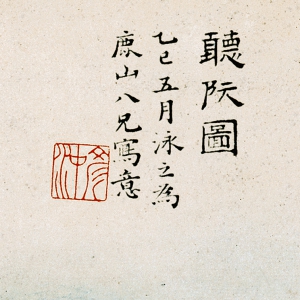 聽阮圖
乙巳五月泳之為
鹿山八兄寫意